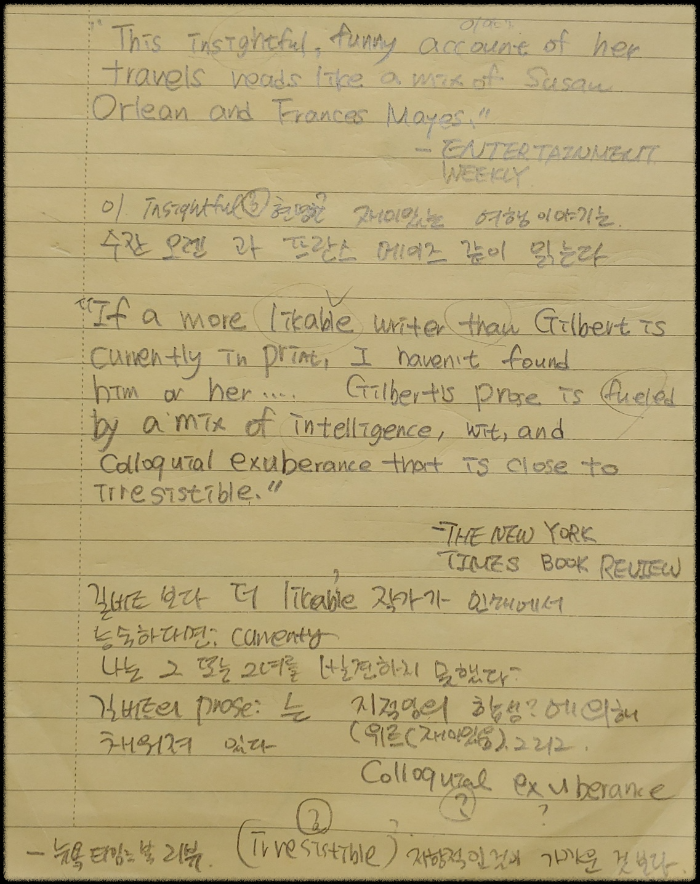 "This insightful, funny account of her
travels reads like a mix of Susan
Orlean and Frances Mayes."
- ENTERTAINMENT
WEEKLY
이 Insightful 재미있는 여행이야기는
수잔 오렌 과 프란스 메이즈 같이 읽는다
"If a more likable writer than Gilbert is
currently in print, I haven't found
him or her.... Gilbert's prose is fueled
by a mix of intelligence, wit, and
Colloquial exuberance that is close to
irresistible."
-THE NEW YORK
TIMES BOOK REVIEW
길버트 보다 더 likable 작가가 인쇄에서
능숙하다면:
나는 그 또는 그녀를 발견하지 못했다.
길버트의 prose: 는 지적임의 합성? 에 의해
채워져 있다 (위트(재미있음). 그리고.
Colloquial exuberance
?
?
- 뉴욕 타임즈 북 리뷰. (irresistible) 저항적인것에 가까운 것 보다.